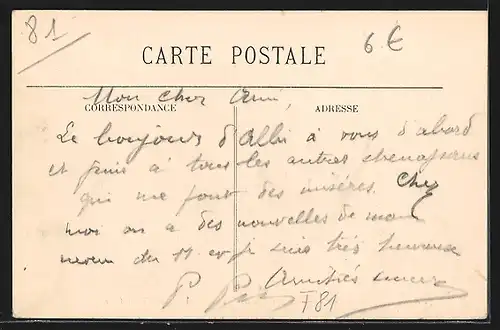 81
6 €
CARTE POSTALE
Mon cher Ami,
CORRESPONDANCE
ADRESSE
Le bonjour d'Albi à vous d'abord
et puis à tous les autres chenapans
qui me font des misères. Chez
moi on a des nouvelles de mon
neveu du 11 et je suis très heureux
Amitiés
P.
T81